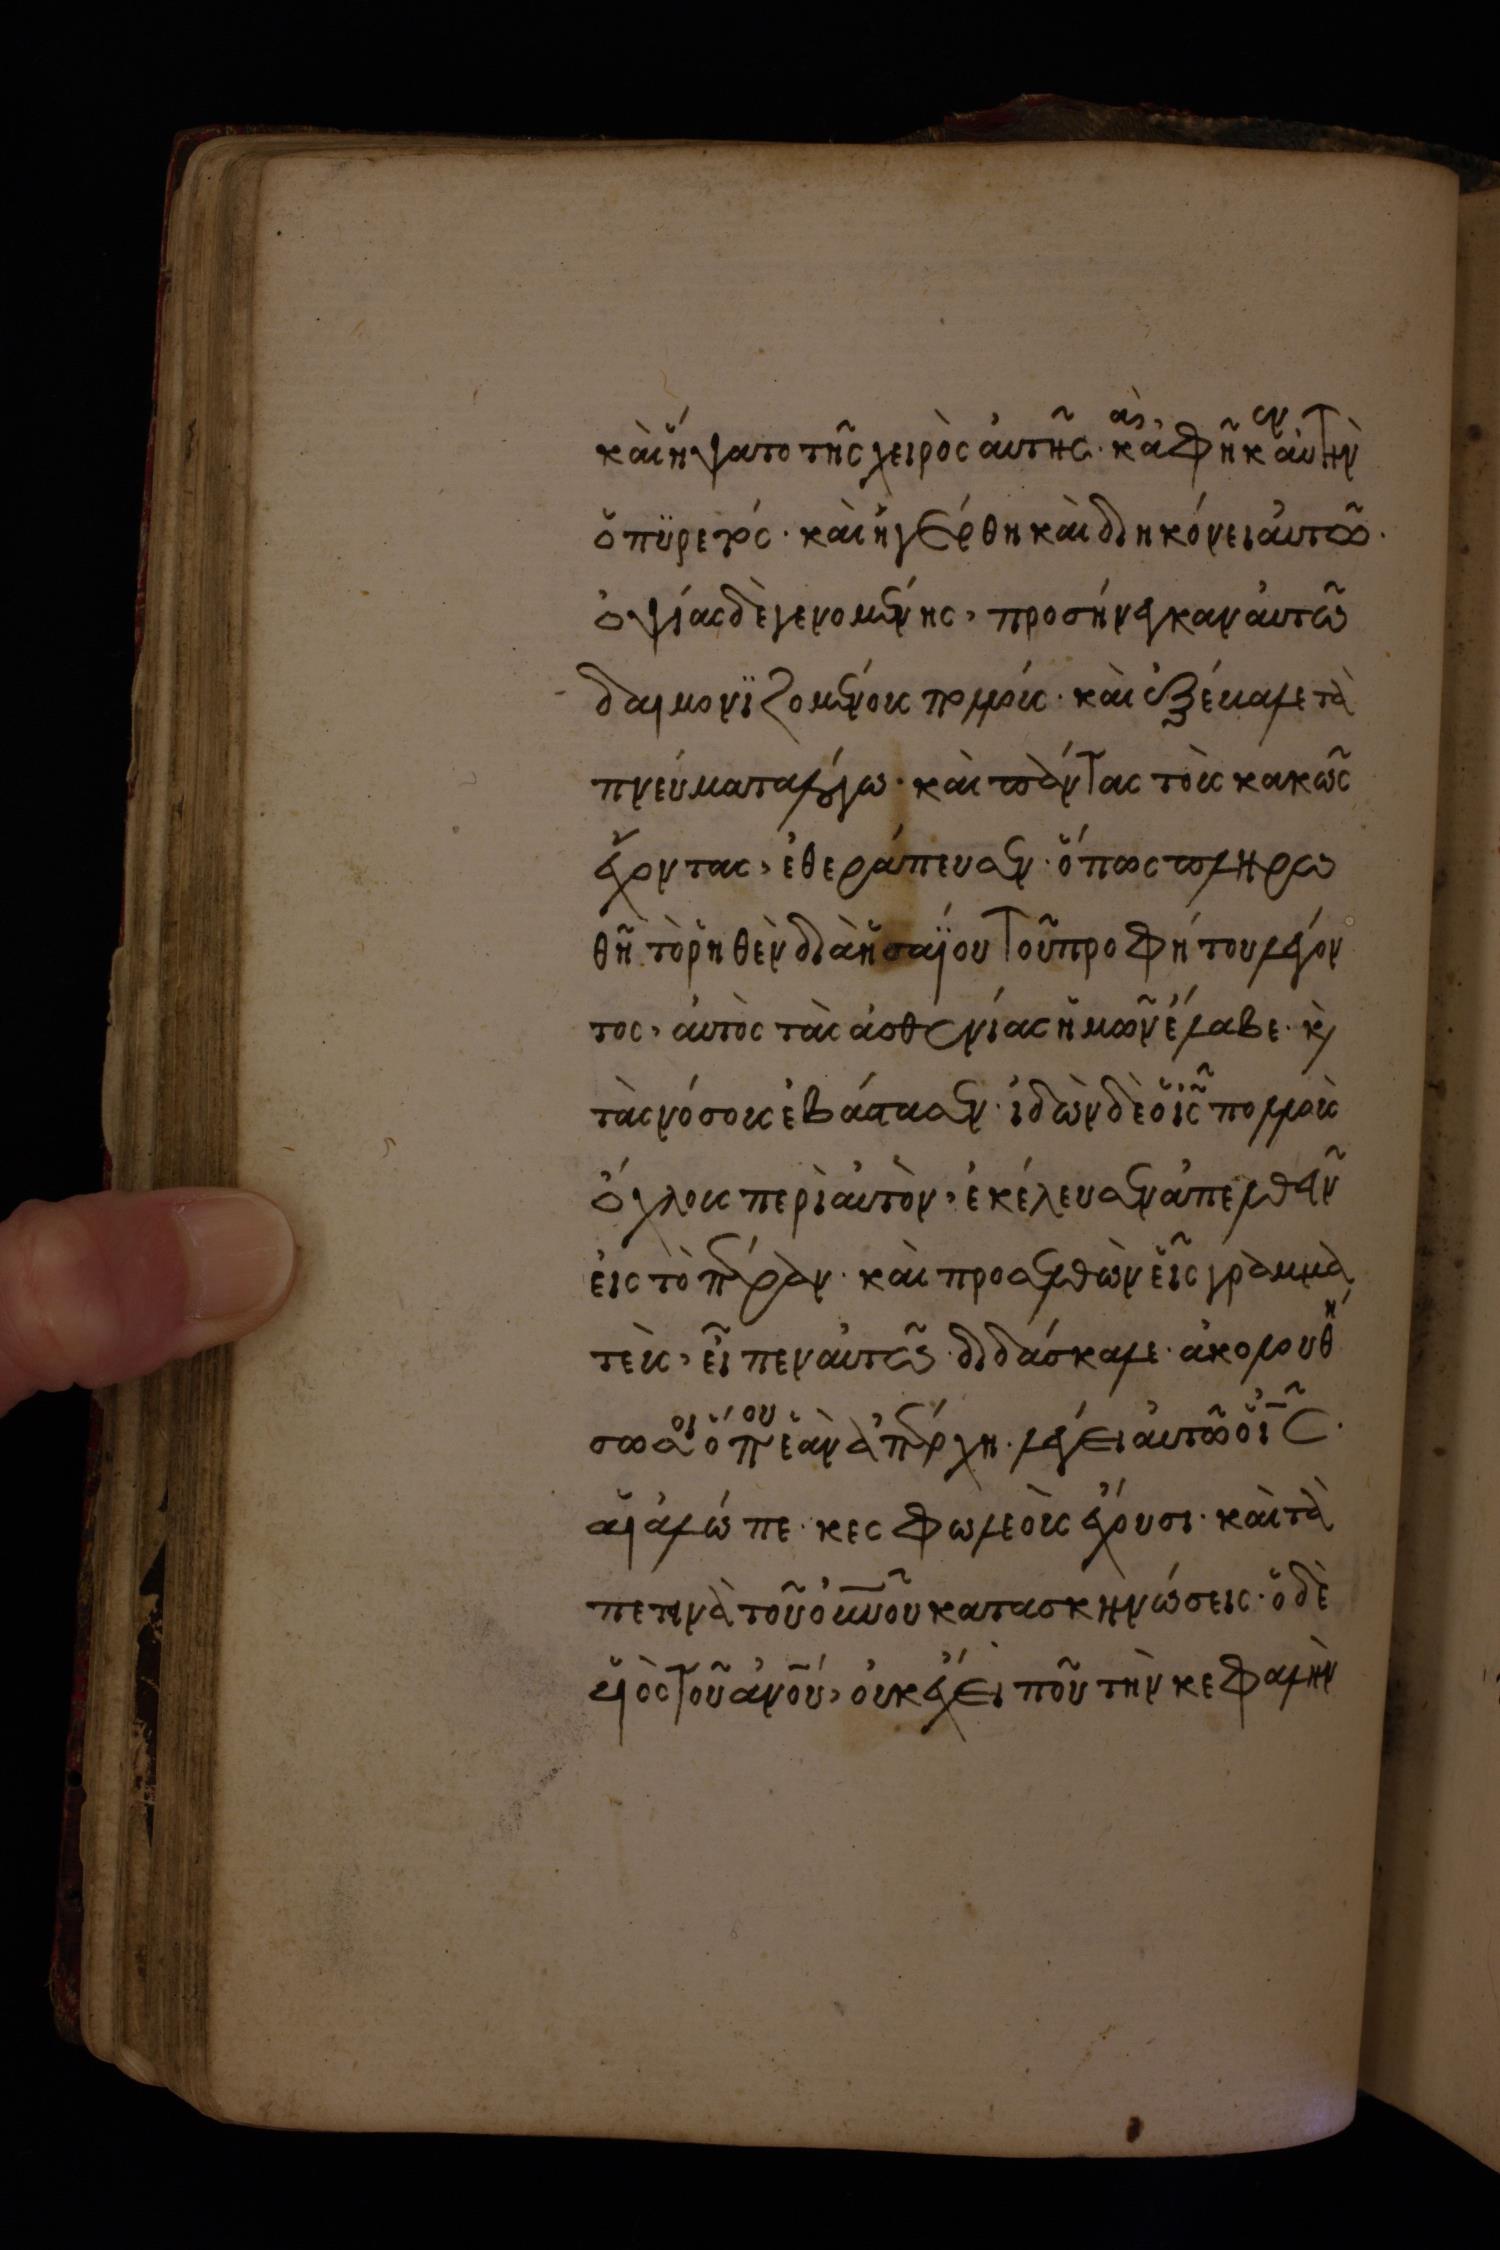 καὶ ἥψατο τῆς χειρὸς αὐτῆς· καὶ ἀφῆκεν αὐτὴν
ὁ πυρετός· καὶ ἠγέρθη καὶ διηκόνει αὐτῶ·
ὀψίας δὲ γενομένης, προσήνεγκαν αὐτῶ
δαιμονϊζομένους πολλούς· καὶ ἐξέβαλε τὰ
πνεύματα λόγω· καὶ πάντας τοὺς κακῶς
ἔχοντας, ἐθεράπευσεν· ὅπως πληρω
θῆ τὸ ῥηθὲν διὰ ἡσαΐου τοῦ προφήτου λέγον
τος, αὐτὸς τὰς ἀσθενίας ἡμῶν ἔλαβε· κὶ
τὰς νόσους ἐβάστασεν· ἰδὼν δὲ ὁ ις̃ πολλοὺς
ὄχλους περὶ αὐτὸν, ἐκέλευσεν ἀπελθεῖν
εἰς τὸ πέραν· καὶ προσελθὼν εἷς γραμμα
τεὺς, εἶπεν αὐτῶ· διδάσκαλε· ἀκολουθή
σω σοι ὅπου ἐὰν ἀπέρχη· λέγει αὐτῶ ὁ ις·
αἱ ἀλώπεκες φωλεοὺς ἔχουσι· καὶ τὰ
πετεινὰ τοῦ οὐνοῦ κατασκηνώσεις· ὁ δὲ
υἱὸς τοῦ ἀνου, οὐκ ἔχει ποῦ τὴν κεφαλὴν